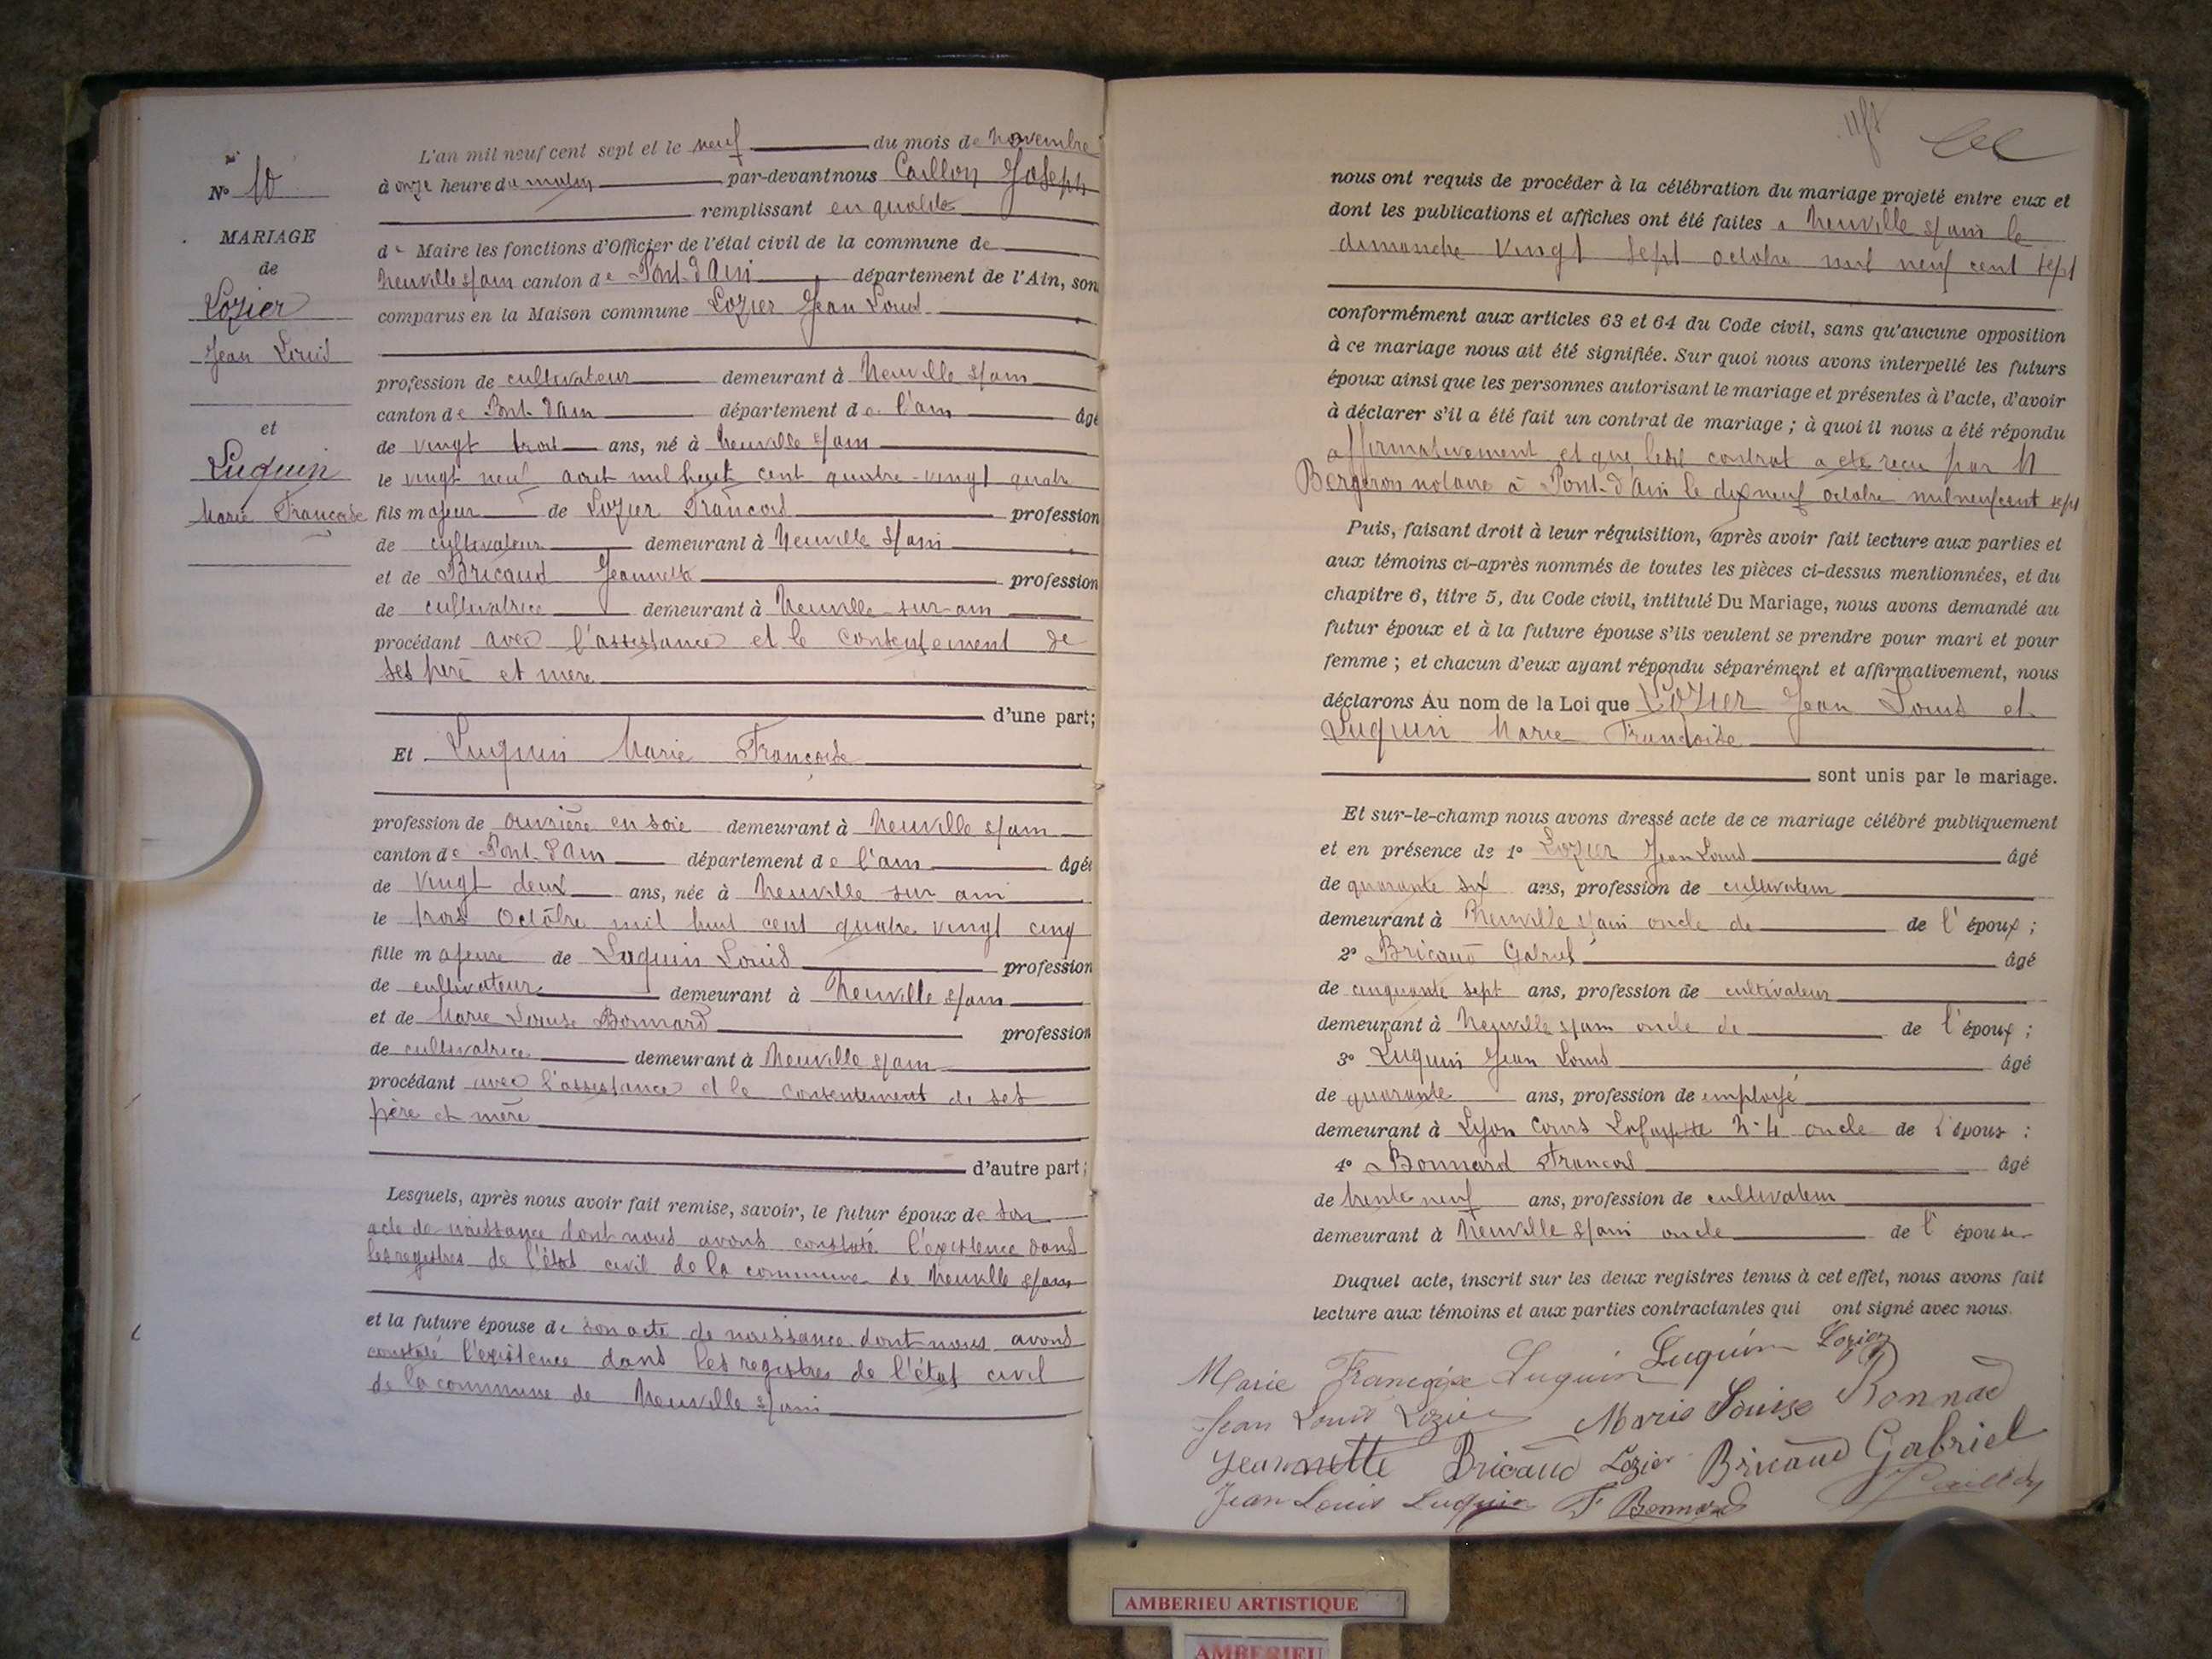 N° 10
MARIAGE
de
Lozier
Jean Louis
et
Luquin
Marie Françoise
L'an mil neuf cent sept et le neuf du mois de novembre
à onze heure du matin par-devant nous Caillon Joseph
remplissant en qualité
de Maire les fonctions d'Officier de l'état civil de la commune de
Neuville s/ain canton de Pont-d'Ain département de l'Ain, son
comparus en la Maison commune Lozier Jean Louis
profession de cultivateur demeurant à Neuville s/ain
canton de Pont-d'Ain département de l'ain âgé
de vingt trois ans, né à Neuville s/ain
le vingt neuf aout mil huit cent quatre-vingt quatre
fils majeur de Lozier François profession
de cultivateur demeurant à Neuville s/ain
et de Bricaud Jeannette profession
de cultivatrice demeurant à Neuville-sur-ain
procédant avec l'assistance et le consentement de
ses père et mère
d'une part;
Et Luquin Marie Françoise
profession de ouvrière en soie demeurant à Neuville s/ain
canton de Pont-d'Ain département de l'ain âgée
de vingt deux ans, née à Neuville sur ain
le trois Octobre mil huit cent quatre vingt cinq
fille majeure de Luquin Louis profession
de cultivateur demeurant à Neuville s/ain
et de Marie Louise Bonnard profession
de cultivatrice demeurant à Neuville s/ain
procédant avec l'assistance et le consentement de ses
père et mère
d'autre part;
Lesquels, après nous avoir fait remise, savoir, le futur époux de son
acte de naissance dont nous avons constaté l'existence dans
les registres de l'état civil de la commune de Neuville s/ain
et la future épouse de son acte de naissance dont nous avons
constaté l'existence dans les registres de l'état civil
de la commune de Neuville s/ain
nous ont requis de procéder à la célébration du mariage projeté entre eux et
dont les publications et affiches ont été faites à Neuville s/ain le
dimanche vingt sept octobre mil neuf cent sept
conformément aux articles 63 et 64 du Code civil, sans qu'aucune opposition
à ce mariage nous ait été signifiée. Sur quoi nous avons interpellé les futurs
époux ainsi que les personnes autorisant le mariage et présentes à l'acte, d'avoir
à déclarer s'il a été fait un contrat de mariage ; à quoi il nous a été répondu
affirmativement et que ledit contrat a été reçu par M
Bergeron notaire à Pont-d'Ain le dix neuf octobre mil neuf cent sept
Puis, faisant droit à leur réquisition, après avoir fait lecture aux parties et
aux témoins ci-après nommés de toutes les pièces ci-dessus mentionnées, et du
chapitre 6, titre 5, du Code civil, intitulé Du Mariage, nous avons demandé au
futur époux et à la future épouse s'ils veulent se prendre pour mari et pour
femme ; et chacun d'eux ayant répondu séparément et affirmativement, nous
déclarons Au nom de la Loi que Lozier Jean Louis et
Luquin Marie Françoise
sont unis par le mariage.
Et sur-le-champ nous avons dressé acte de ce mariage célébré publiquement
et en présence de 1° Lozier Jean Louis âgé
de quarante six ans, profession de cultivateur
demeurant à Neuville s/ain oncle de de l'époux ;
2° Bricaud Gabriel âgé
de cinquante sept ans, profession de cultivateur
demeurant à Neuville s/ain oncle de de l'époux ;
3° Luquin Jean Louis âgé
de quarante ans, profession de employé
demeurant à Lyon Cours Lafayette N° 4 oncle de l'épouse ;
4° Bonnard François âgé
de trente neuf ans, profession de cultivateur
demeurant à Neuville s/ain oncle de l'épouse
Duquel acte, inscrit sur les deux registres tenus à cet effet, nous avons fait
lecture aux témoins et aux parties contractantes qui ont signé avec nous.
Marie Françoise Luquin Luquin Lozier
Jean Louis Lozier Marie Louise Bonnad
Jeannette Bricaud Lozier Bricaud Gabriel
Jean Louis Luquin F Bonnard Caillon
AMBERIEU ARTISTIQUE
AMBERIEU